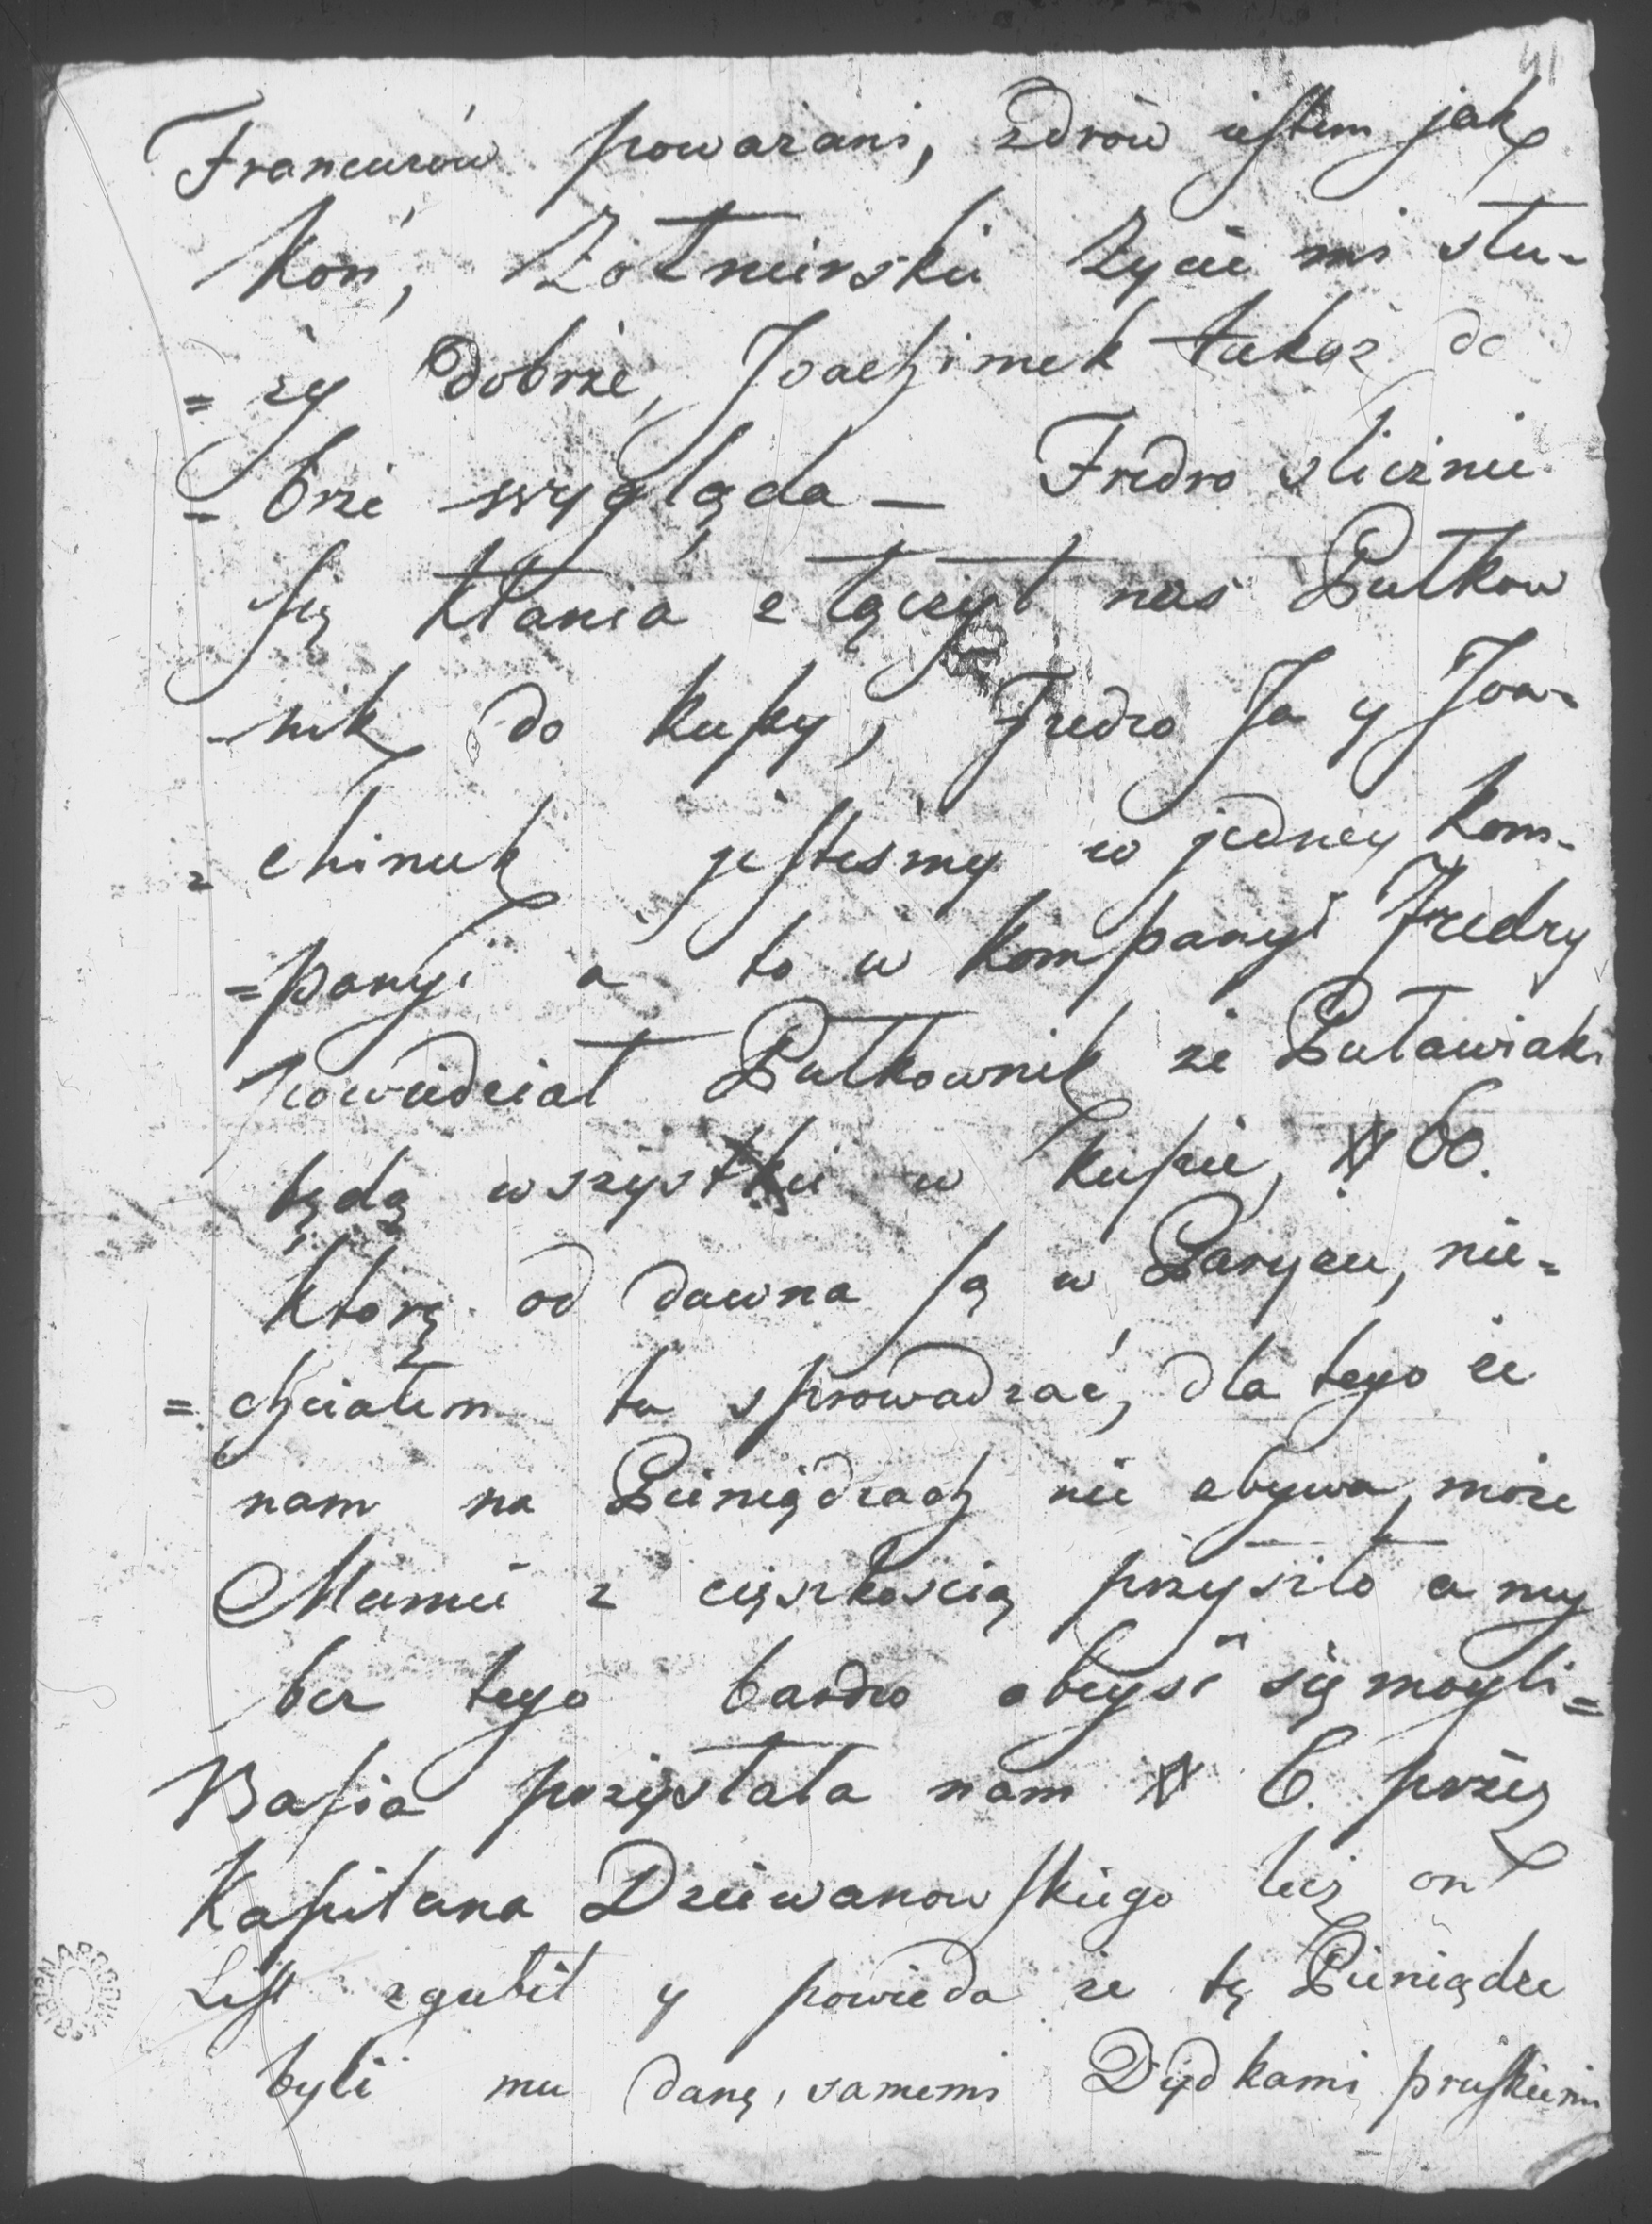 41
Francuzów powazani, zdrów iestem jak
koń, Żołnierskie życie mi słu-
=ży dobrze, Joachimek takoż do
=brze wygląda — Fredro slicznie
się kłania złączył nas Pułkow
-nik do kupy, Fredro Ja y Joa-
=chimek jestesmy w jedney kom-
=panyi a to w kompanyi Fredry
powiedział Pułkownik że Puławiaki
będą wszystkie w kupie, # 60.
ktorę od dawna są w Paryzu, nie=
=chciałem tu sprowadzać, dla tego że
nam na Pieniądzach nie zbywa, może
Mamie z cięszkoscią przyszło a my
bez tego bardzo obeyść się mogli=
Basia przysłała nam # 6. przez
Kapitana Dziewanowskiego lecz on
List zgubił y powieda że tę Pieniądze
byli mu danę, samemi Dydkami pruskiemi